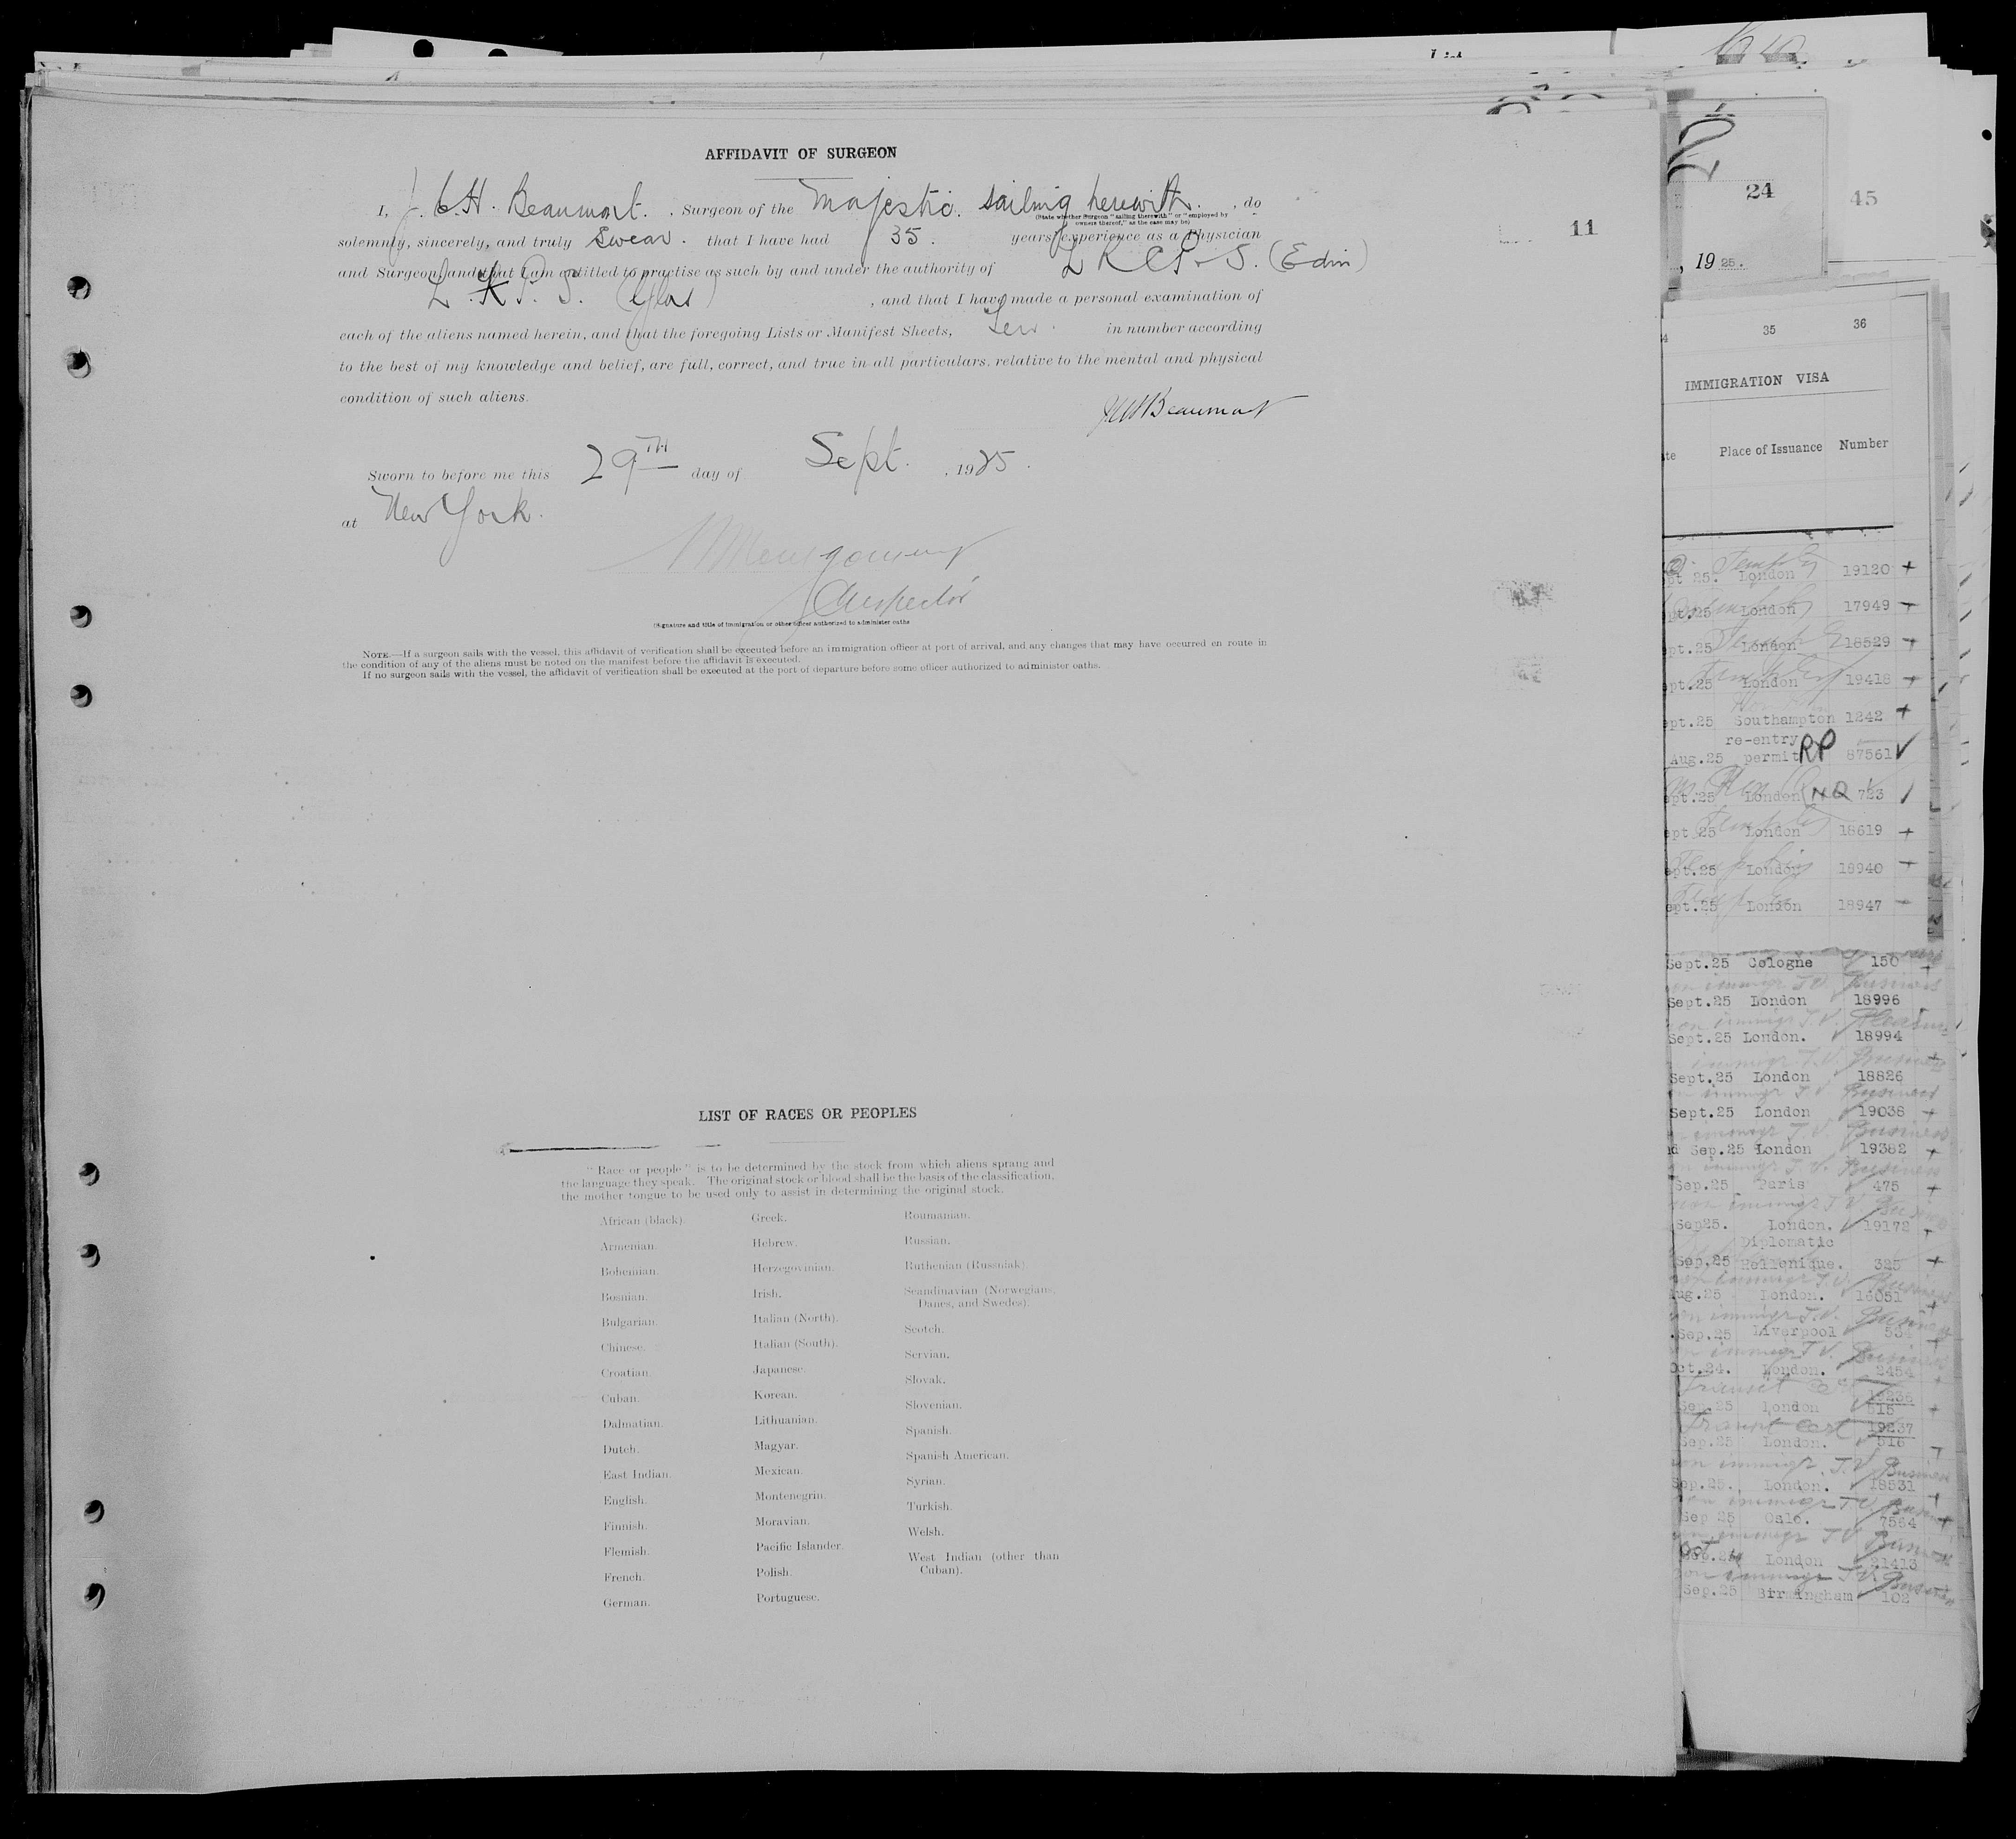 AFFIDAVIT OF SURGEON
I, J. C. H. Beaumont. , Surgeon of the Majestic. sailing herewith. , do
(State whether Surgeon "sailing therewith" or "employed by
owners thereof," as the case may be)
solemnly, sincerely, and truly swear. that I have had 35. years' experience as a Physician
and Surgeon, and that I am entitled to practise as such by and under the authority of L R C P. S. (Edin)
L. R. P. S. (Glas) , and that I have made a personal examination of
each of the aliens named herein, and that the foregoing Lists or Manifest Sheets, in number according
to the best of my knowledge and belief, are full, correct, and true in all particulars, relative to the mental and physical
condition of such aliens.
JCHBeaumont
Sworn to before me this 29TH day of Sept. , 1925.
at New York.
Montgomery
Inspector
(Signature and title of immigration or other officer authorized to administer oaths
NOTE.—If a surgeon sails with the vessel, this affidavit of verification shall be executed before an immigration officer at port of arrival, and any changes that may have occurred en route in
the condition of any of the aliens must be noted on the manifest before the affidavit is executed.
If no surgeon sails with the vessel, the affidavit of verification shall be executed at the port of departure before some officer authorized to administer oaths.
LIST OF RACES OR PEOPLES
"Race or people" is to be determined by the stock from which aliens sprang and
the language they speak. The original stock or blood shall be the basis of the classification,
the mother tongue to be used only to assist in determining the original stock.
African (black).
Armenian.
Bohemian.
Bosnian.
Bulgarian.
Chinese.
Croatian.
Cuban.
Dalmatian.
Dutch.
East Indian.
English.
Finnish.
Flemish.
French.
German.
Greek.
Hebrew.
Herzegovinian.
Irish.
Italian (North).
Italian (South).
Japanese.
Korean.
Lithuanian.
Magyar.
Mexican.
Montenegrin.
Moravian.
Pacific Islander.
Polish.
Portuguese.
Roumanian.
Russian.
Ruthenian (Russniak)
Scandinavian (Norwegians,
Danes, and Swedes).
Scotch.
Servian.
Slovak.
Slovenian.
Spanish.
Spanish American.
Syrian.
Turkish.
Welsh.
West Indian (other than
Cuban).
11
2
24
45
, 19 25.
35 36
IMMIGRATION VISA
Place of Issuance Number
pt 25. London 19120 +
pt.25 London 17949 +
pt.25 London 18529 +
pt.25 London 19418 +
pt.25 Southampton 1242 +
re-entry
Aug.25 permit RP 87561 ✓
pt.25 London NQ 723 /
pt 25 London 18619 +
pt.25 London 18940 +
ept.25 London 18947
Sept.25 Cologne 150 +
Sept.25 London 18996
Sept.25 London. 18994
Sept.25 London 18826
Sept.25 London 19038 +
Sep.25 London 19382 +
Sep.25 Paris 475 +
Sep25. London. 19172 +
Diplomatic
Sep.25 Hellenique. 325 +
Aug.25 London. 16051 +
Sep.25 Liverpool 534
Oct.24. London. 2454
Transit
19236
Sep.25 London 515 +
Transit Cert 19237
Sep.25 London. 516
Sep.25. London. 18531 +
Sep 25 Oslo. 7564 +
London 21413
Sep.25 Birmingham 102